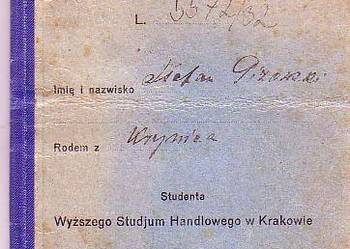 L. 5572/32
Imię i nazwisko Stefan
Rodem z Krynica
Studenta
Wyższego Studjum Handlowego w Krakowie